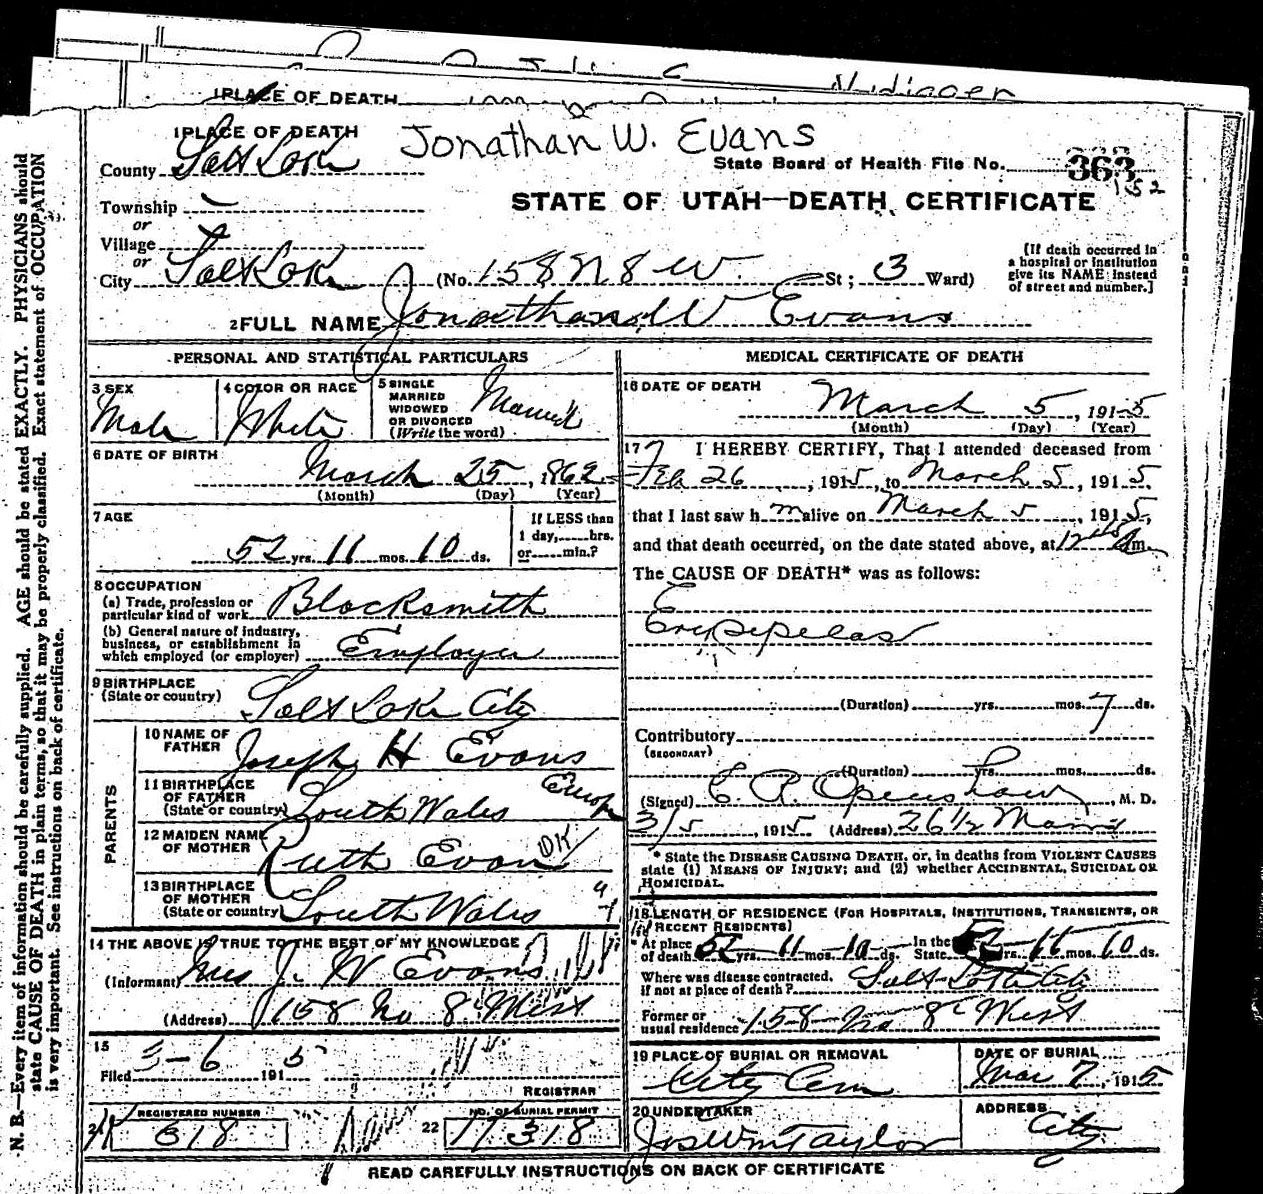 1 PLACE OF DEATH
1 PLACE OF DEATH Jonathan W. Evans
County Salt Lake State Board of Health File No. 363
152
Township
or
STATE OF UTAH—DEATH CERTIFICATE
Village
or
City Salt Lake (No. 158 N 8 W. St; 3 Ward)
[If death occurred in
a hospital or institution
give its NAME instead
of street and number.]
2 FULL NAME Jonathan W Evans
PERSONAL AND STATISTICAL PARTICULARS
3 SEX
Male
4 COLOR OR RACE
White
5 SINGLE
MARRIED
WIDOWED
OR DIVORCED
(Write the word)
Married
6 DATE OF BIRTH
March 25, 1862
(Month) (Day) (Year)
7 AGE
52 yrs. 11 mos. 10 ds.
If LESS than
1 day,......hrs.
or......min.?
8 OCCUPATION
(a) Trade, profession or
particular kind of work Blacksmith
(b) General nature of industry,
business, or establishment in
which employed (or employer) Employer
9 BIRTHPLACE
(State or country) Salt Lake City
PARENTS
10 NAME OF
FATHER Joseph H Evans
11 BIRTHPLACE
OF FATHER
(State or country) South Wales
12 MAIDEN NAME
OF MOTHER Ruth Evan OK
13 BIRTHPLACE
OF MOTHER
(State or country) South Wales
14 THE ABOVE IS TRUE TO THE BEST OF MY KNOWLEDGE
(Informant) Mrs J. W Evans
(Address) 158 No 8 West
15
Filed 3-6 1915
REGISTRAR
21 REGISTERED NUMBER
618
22 NO. OF BURIAL PERMIT
11318
MEDICAL CERTIFICATE OF DEATH
16 DATE OF DEATH
March 5, 1915
(Month) (Day) (Year)
17 I HEREBY CERTIFY, That I attended deceased from
Feb 26, 1915, to March 5, 1915,
that I last saw h m alive on March 5, 1915,
and that death occurred, on the date stated above, at 12 m.
The CAUSE OF DEATH* was as follows:
Erysipelas
(Duration) yrs. mos. 7 ds.
Contributory
(SECONDARY)
(Duration) yrs. mos. ds.
(Signed) E. R. Openshaw, M. D.
3/5, 1915 (Address) 26 1/2 Main
* State the DISEASE CAUSING DEATH, or, in deaths from VIOLENT CAUSES
state (1) MEANS OF INJURY; and (2) whether ACCIDENTAL, SUICIDAL OR
HOMICIDAL.
18 LENGTH OF RESIDENCE (FOR HOSPITALS, INSTITUTIONS, TRANSIENTS, OR
RECENT RESIDENTS)
At place
of death 52 yrs. 11 mos. 10 ds. In the
State 52 yrs. 11 mos. 10 ds.
Where was disease contracted,
if not at place of death? Salt Lake City
Former or
usual residence 158 No 8 West
19 PLACE OF BURIAL OR REMOVAL
City Cem
DATE OF BURIAL
Mar 7, 1915
20 UNDERTAKER
Jos Wm Taylor
ADDRESS
City
READ CAREFULLY INSTRUCTIONS ON BACK OF CERTIFICATE
N. B.—Every item of information should be carefully supplied. AGE should be stated EXACTLY. PHYSICIANS should
state CAUSE OF DEATH in plain terms, so that it may be properly classified. Exact statement of OCCUPATION
is very important. See instructions on back of certificate.